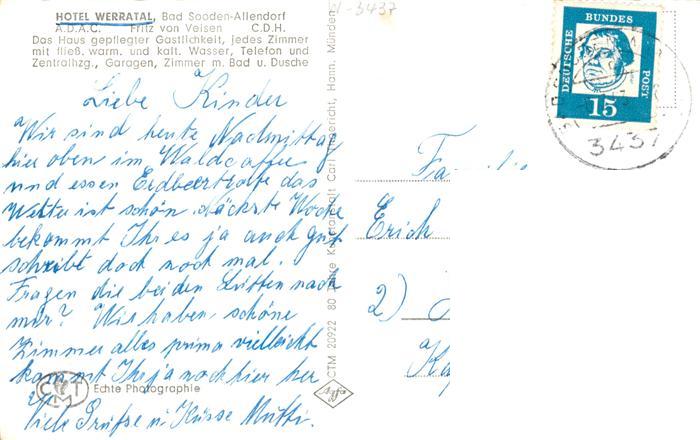 HOTEL WERRATAL, Bad Sooden-Allendorf
A.D.A.C. Fritz von Veisen C.D.H.
Das Haus gepflegter Gastlichkeit, jedes Zimmer
mit fließ. warm. und kalt. Wasser, Telefon und
Zentralhzg., Garagen, Zimmer m. Bad u. Dusche
Liebe Kinder
Wir sind heute Nachmittag
hier oben im Waldcaffee
und essen Erdbeertorte das
Wetter ist schön. Nächste Woche
bekommt Ihr es ja auch gut
schreibt doch noch mal.
Fragen die beiden nach
mir? Wir haben schöne
Zimmer alles prima vielleicht
kommt Ihr ja noch hier her
Viele Grüße u. Küsse Mutti.
CMT
Echte Photographie
CTM 20922 80 Jahre Kunstanstalt Carl Thoericht, Hann. Münden
Agfa
d-3437
DEUTSCHE BUNDES POST
15
3437
Fa
Erich
2)